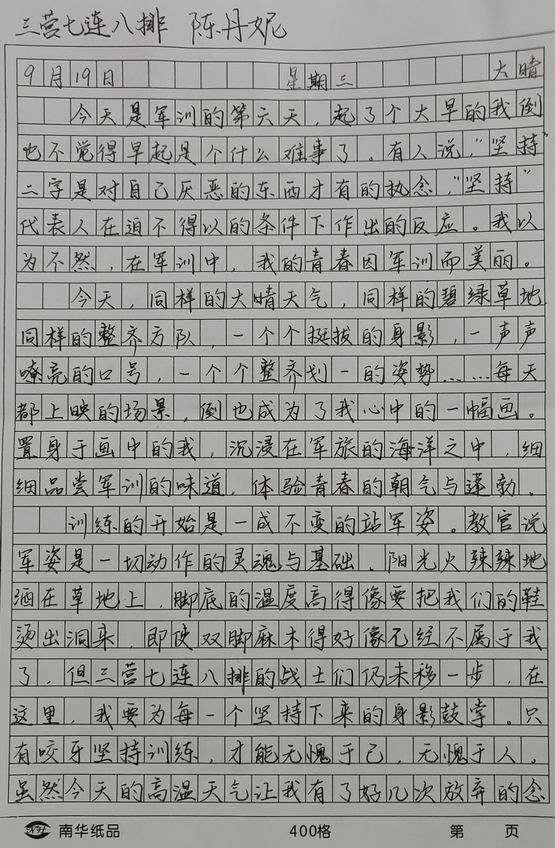 三营七连八排 陈丹妮
9月19日 星期三 大晴
今天是军训的第六天，起了个大早的我倒
也不觉得早起是个什么难事了。有人说，“坚持”
二字是对自己厌恶的东西才有的执念，“坚持”
代表人在迫不得以的条件下作出的反应。我以
为不然，在军训中，我的青春因军训而美丽。
今天，同样的大晴天气，同样的碧绿草地
同样的整齐方队，一个个挺拔的身影，一声声
嘹亮的口号，一个个整齐划一的姿势……每天
都上映的场景，倒也成为了我心中的一幅画。
置身于画中的我，沉浸在军旅的海洋之中，细
细品尝军训的味道，体验青春的朝气与蓬勃。
训练的开始是一成不变的站军姿。教官说
军姿是一切动作的灵魂与基础，阳光火辣辣地
洒在草地上，脚底的温度高得像要把我们的鞋
烫出洞来，即使双脚麻木得好像已经不属于我
了，但三营七连八排的战士们仍未移一步，在
这里，我要为每一个坚持下来的身影鼓掌。只
有咬牙坚持训练，才能无愧于己，无愧于人。
虽然今天的高温天气让我有了好几次放弃的念
南华纸品 400格 第 页